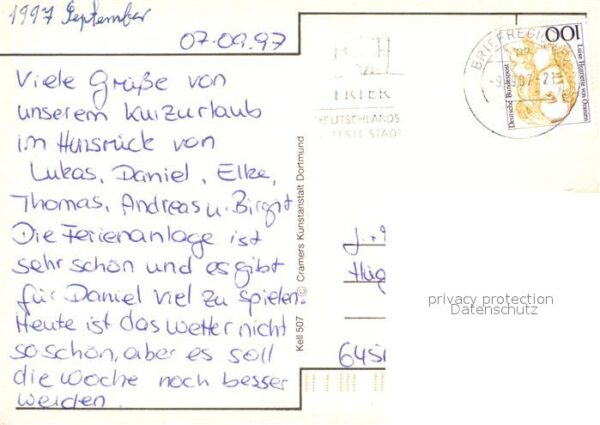 1997 September
07.09.97
Viele Grüße von
unserem Kurzurlaub
im Hunsrück von
Lukas, Daniel, Elke,
Thomas, Andreas u. Birgit
Die Ferienanlage ist
sehr schön und es gibt
für Daniel viel zu spielen.
Heute ist das Wetter nicht
so schön, aber es soll
die Woche noch besser
werden.
Kell 507 © Cramers Kunstanstalt Dortmund
TRIER
DEUTSCHLANDS
STADT
BRIEFREGION
100
Deutsche Bundespost
Luise Henriette von Oranien
privacy protection
Datenschutz